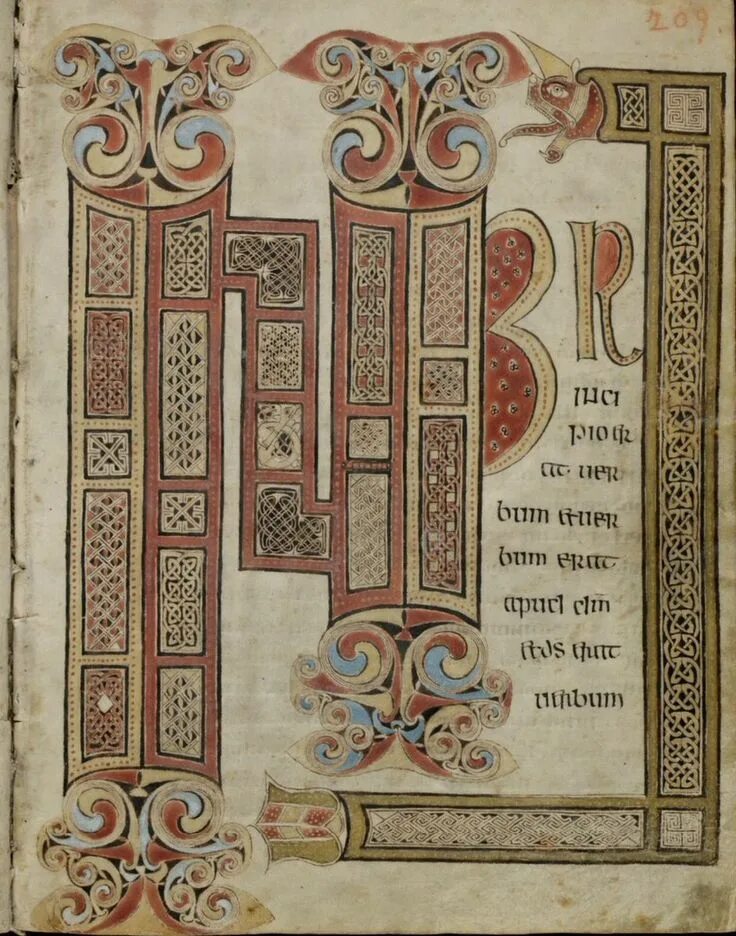 209.
INP R
inci
pio er
at uer
bum &uer
bum erat
apud dm̄
&ds erat
uerbum